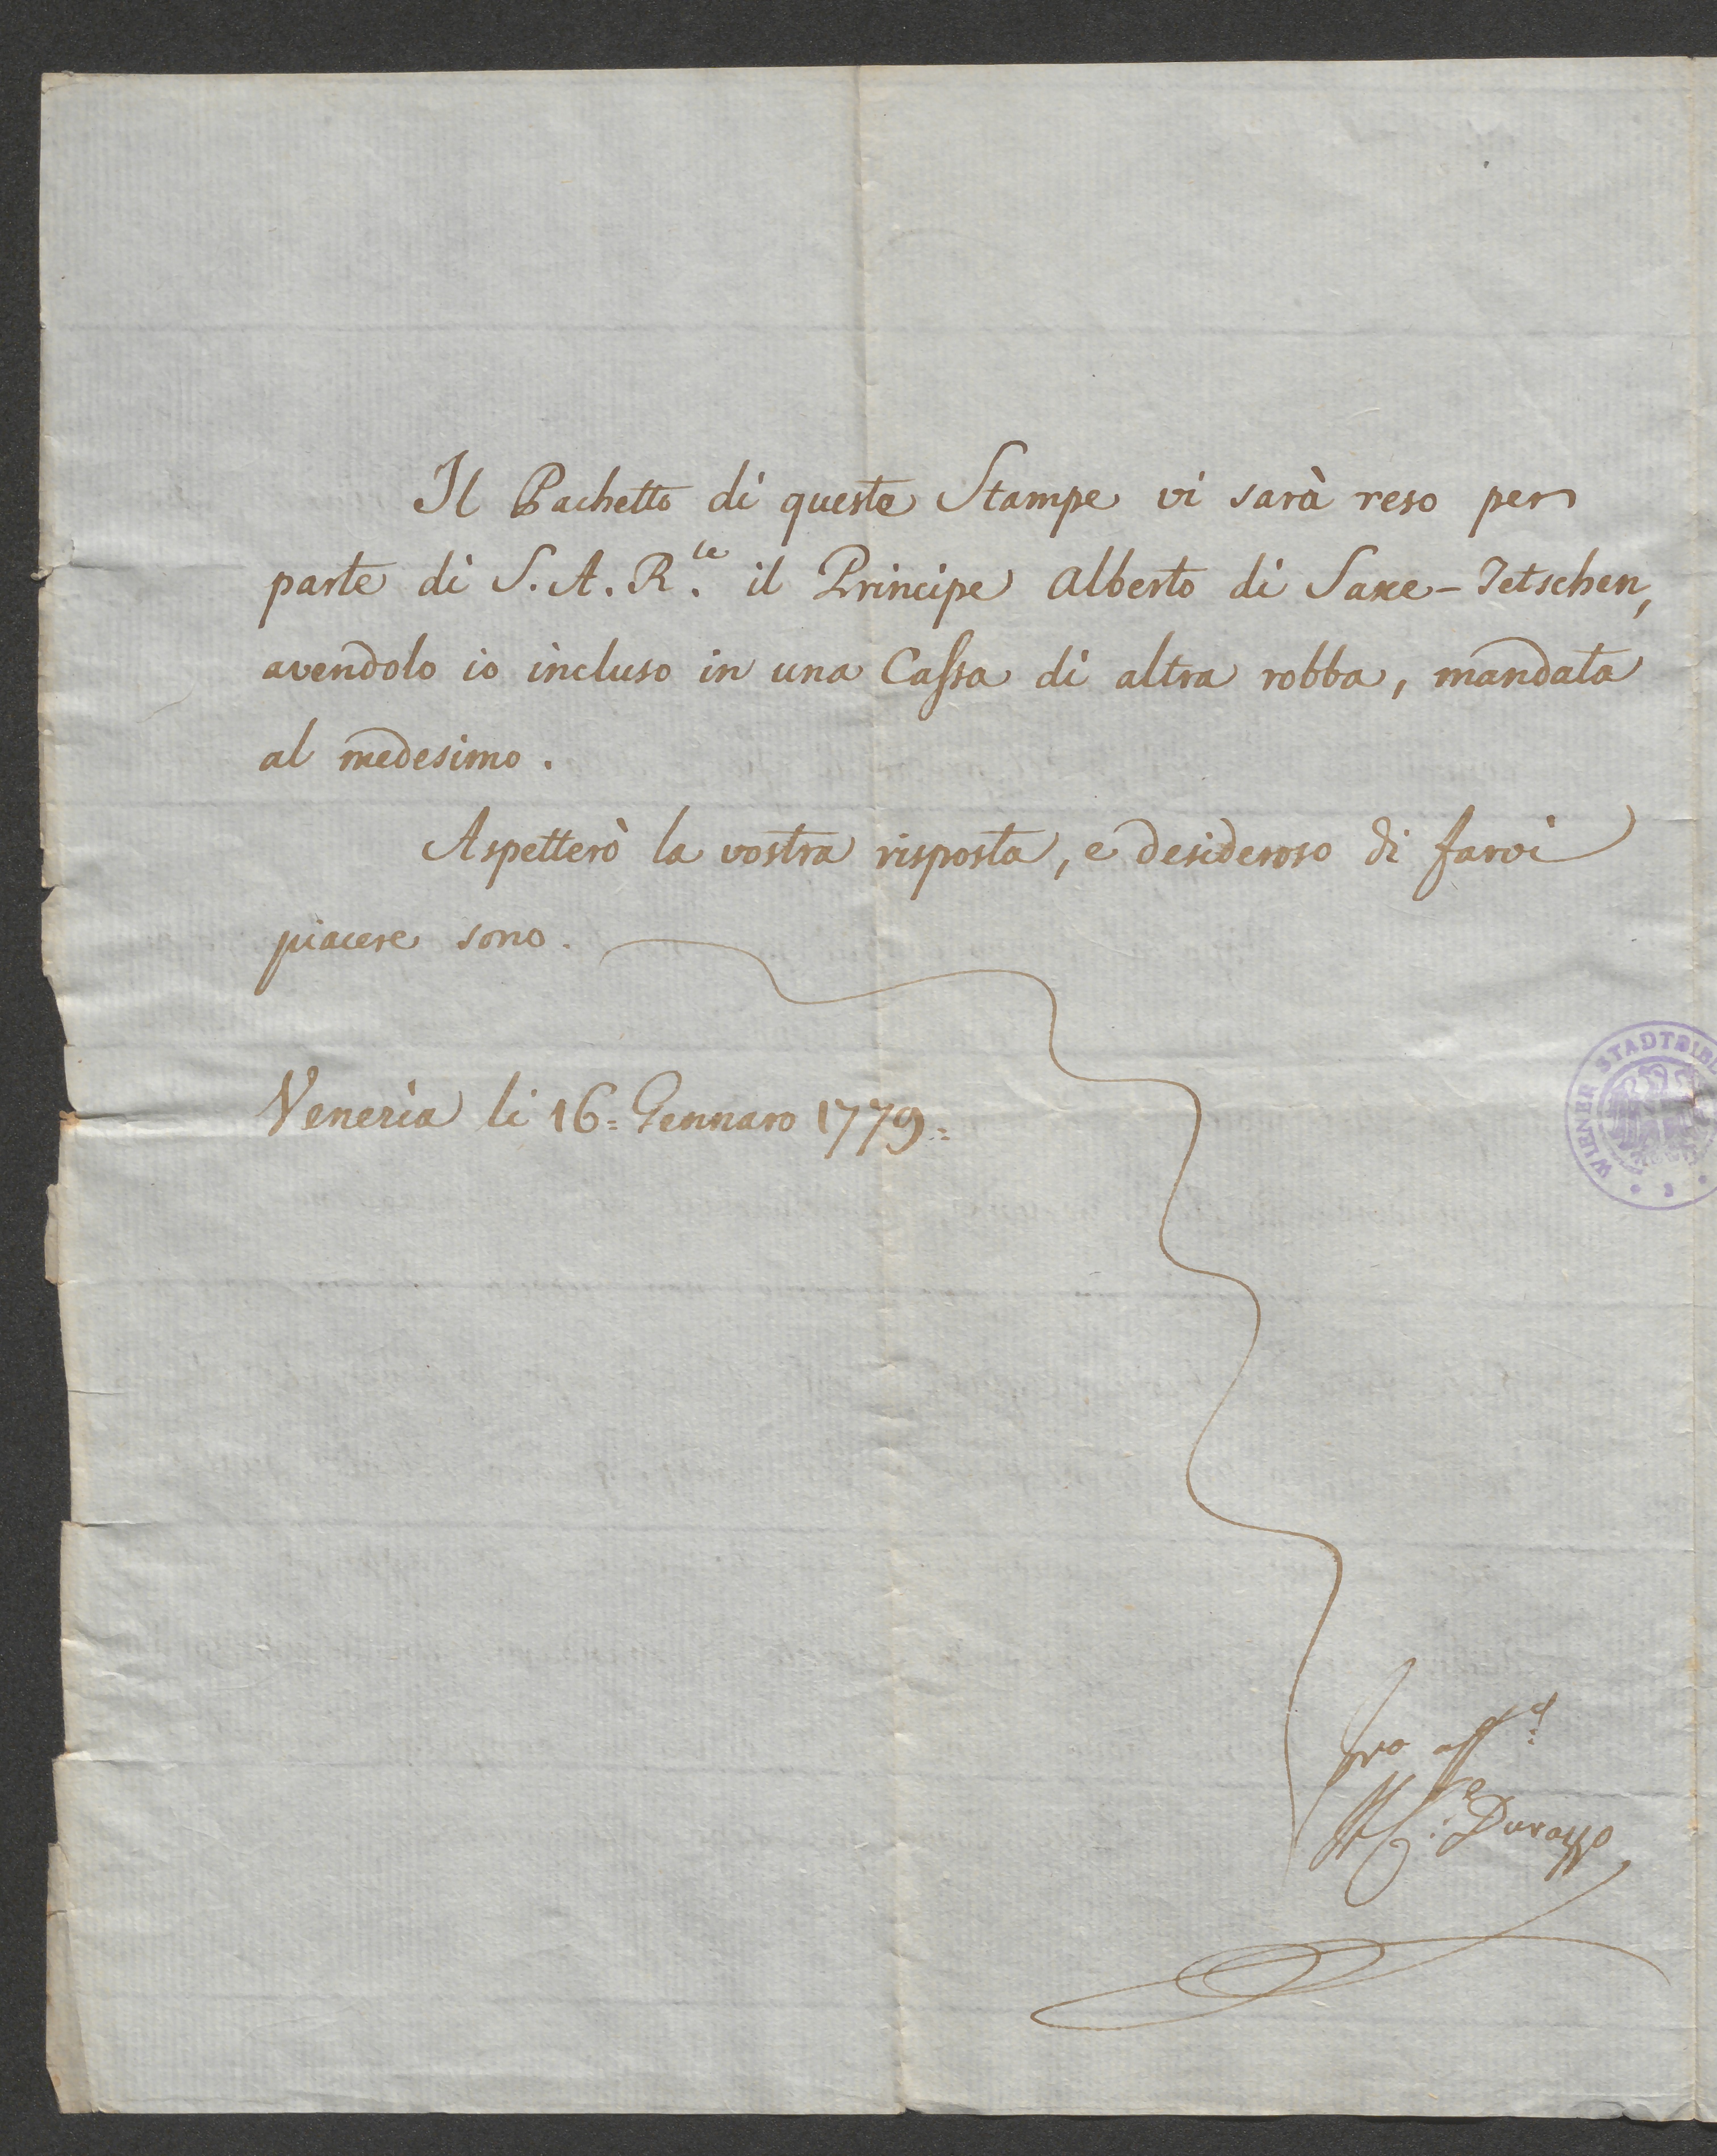 Il Pachetto di queste Stampe vi sarà reso per
parte di S. A. R.le il Principe Alberto di Saxe-Tetschen,
avendolo io incluso in una Caſsa di altra robba, mandata
al medesimo.
Aspetterò la vostra risposta, e desideroso di farvi
piacere sono.
Venezia li 16= Gennaro 1779=
Durazzo
WIENER STADTBIB